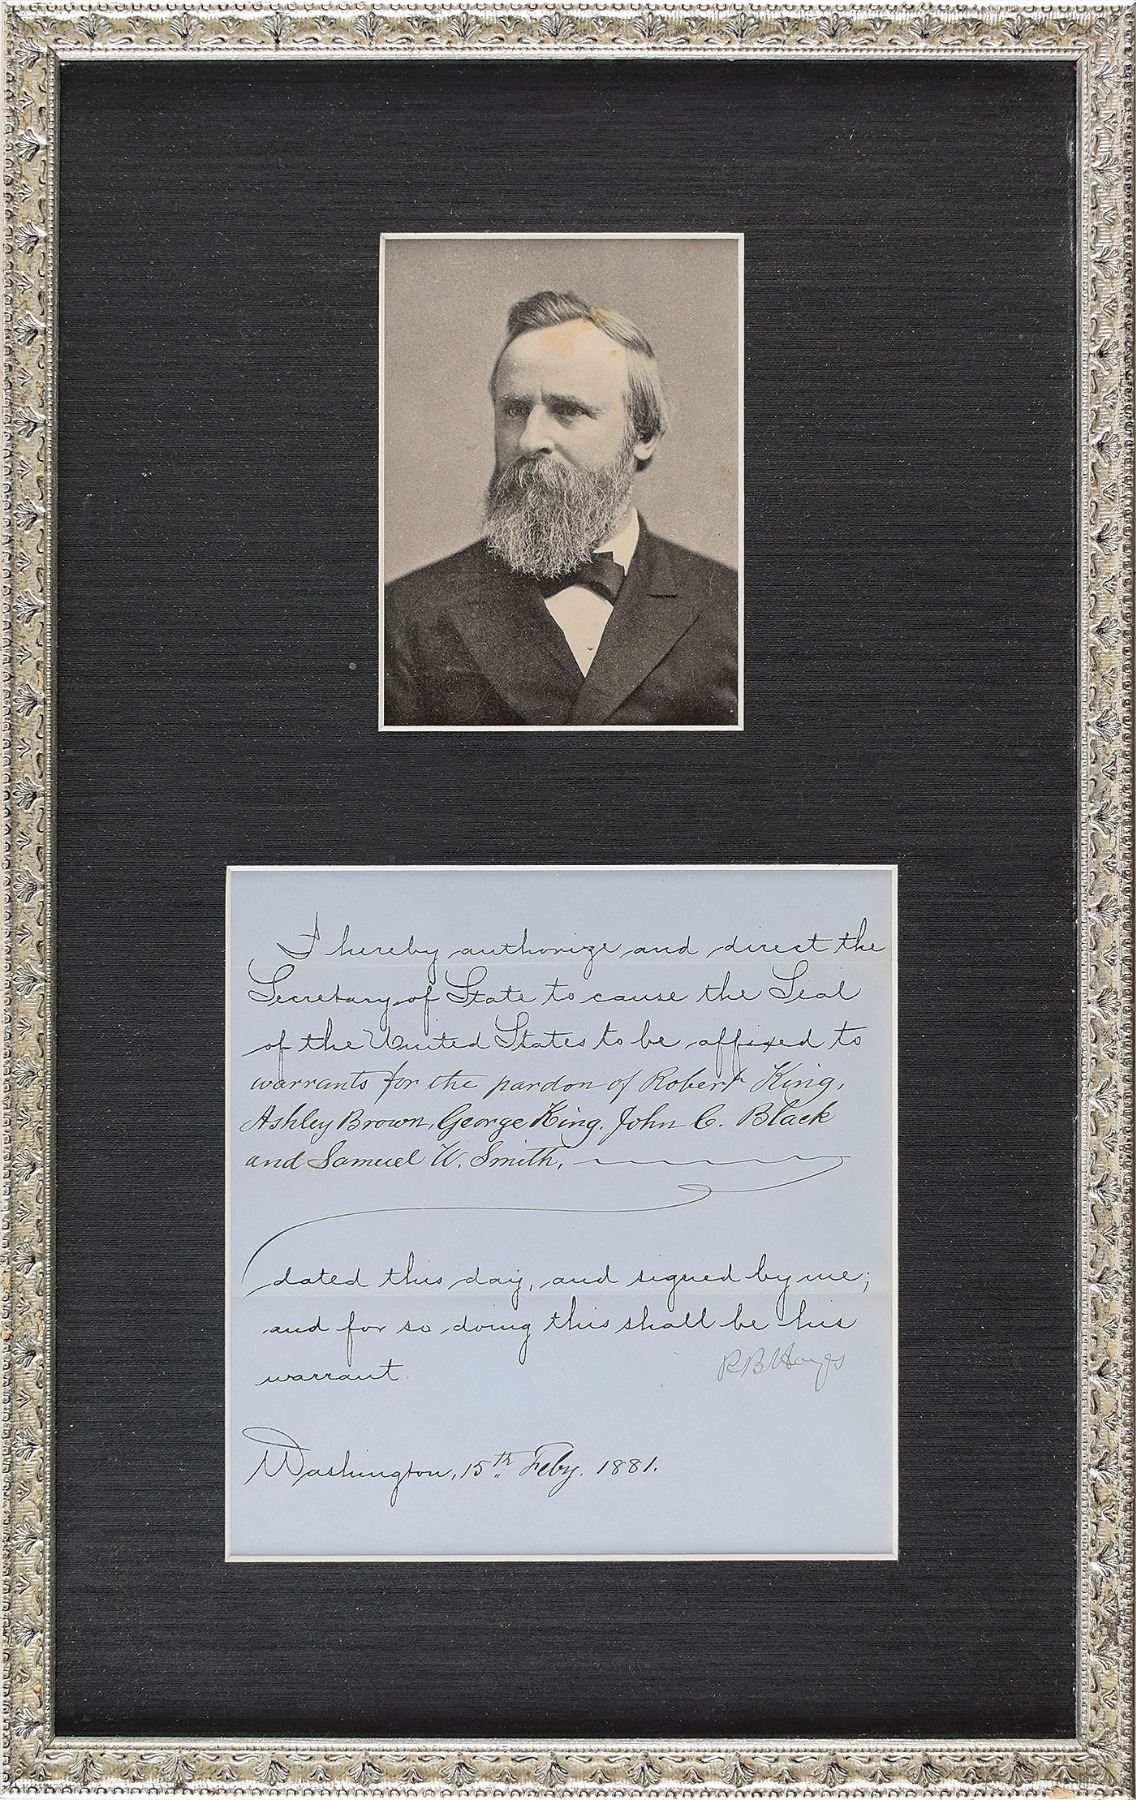 I hereby authorize and direct the
Secretary of State to cause the Seal
of the United States to be affixed to
warrants for the pardon of Robert King,
Ashley Brown, George King, John C. Black
and Samuel W. Smith,
dated this day, and signed by me;
and for so doing this shall be his
warrant.
R B Hayes
Washington, 15th Feby. 1881.